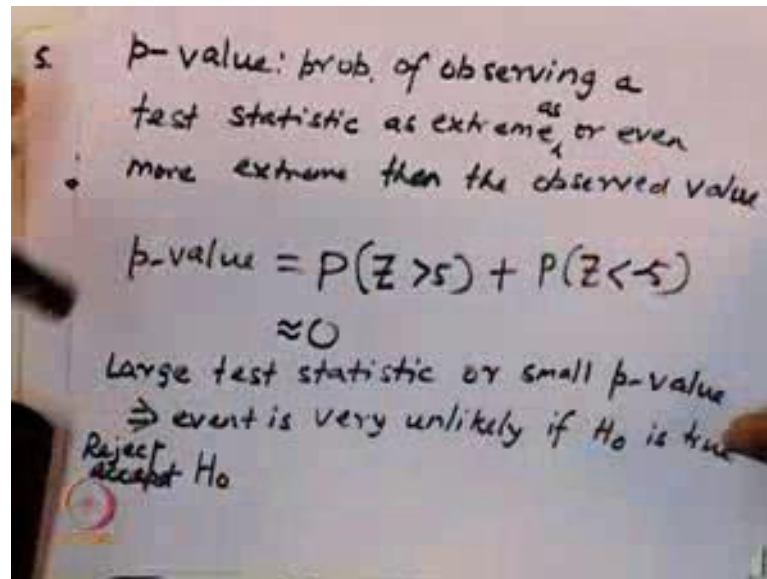 5. p-value: prob. of observing a
test statistic as extreme as or even
more extreme than the observed value
p-value = P(Z >5) + P(Z<-5)
≈0
Large test statistic or small p-value
⇒ event is very unlikely if H₀ is true
Reject
accept H₀